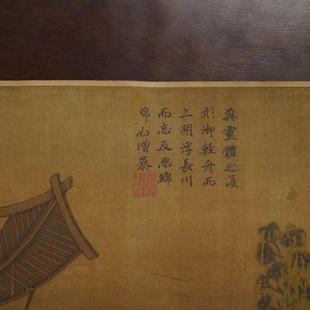 冀靈體之復
形御輕舟而
上溯浮長川
而忘反思緜
緜而增慕